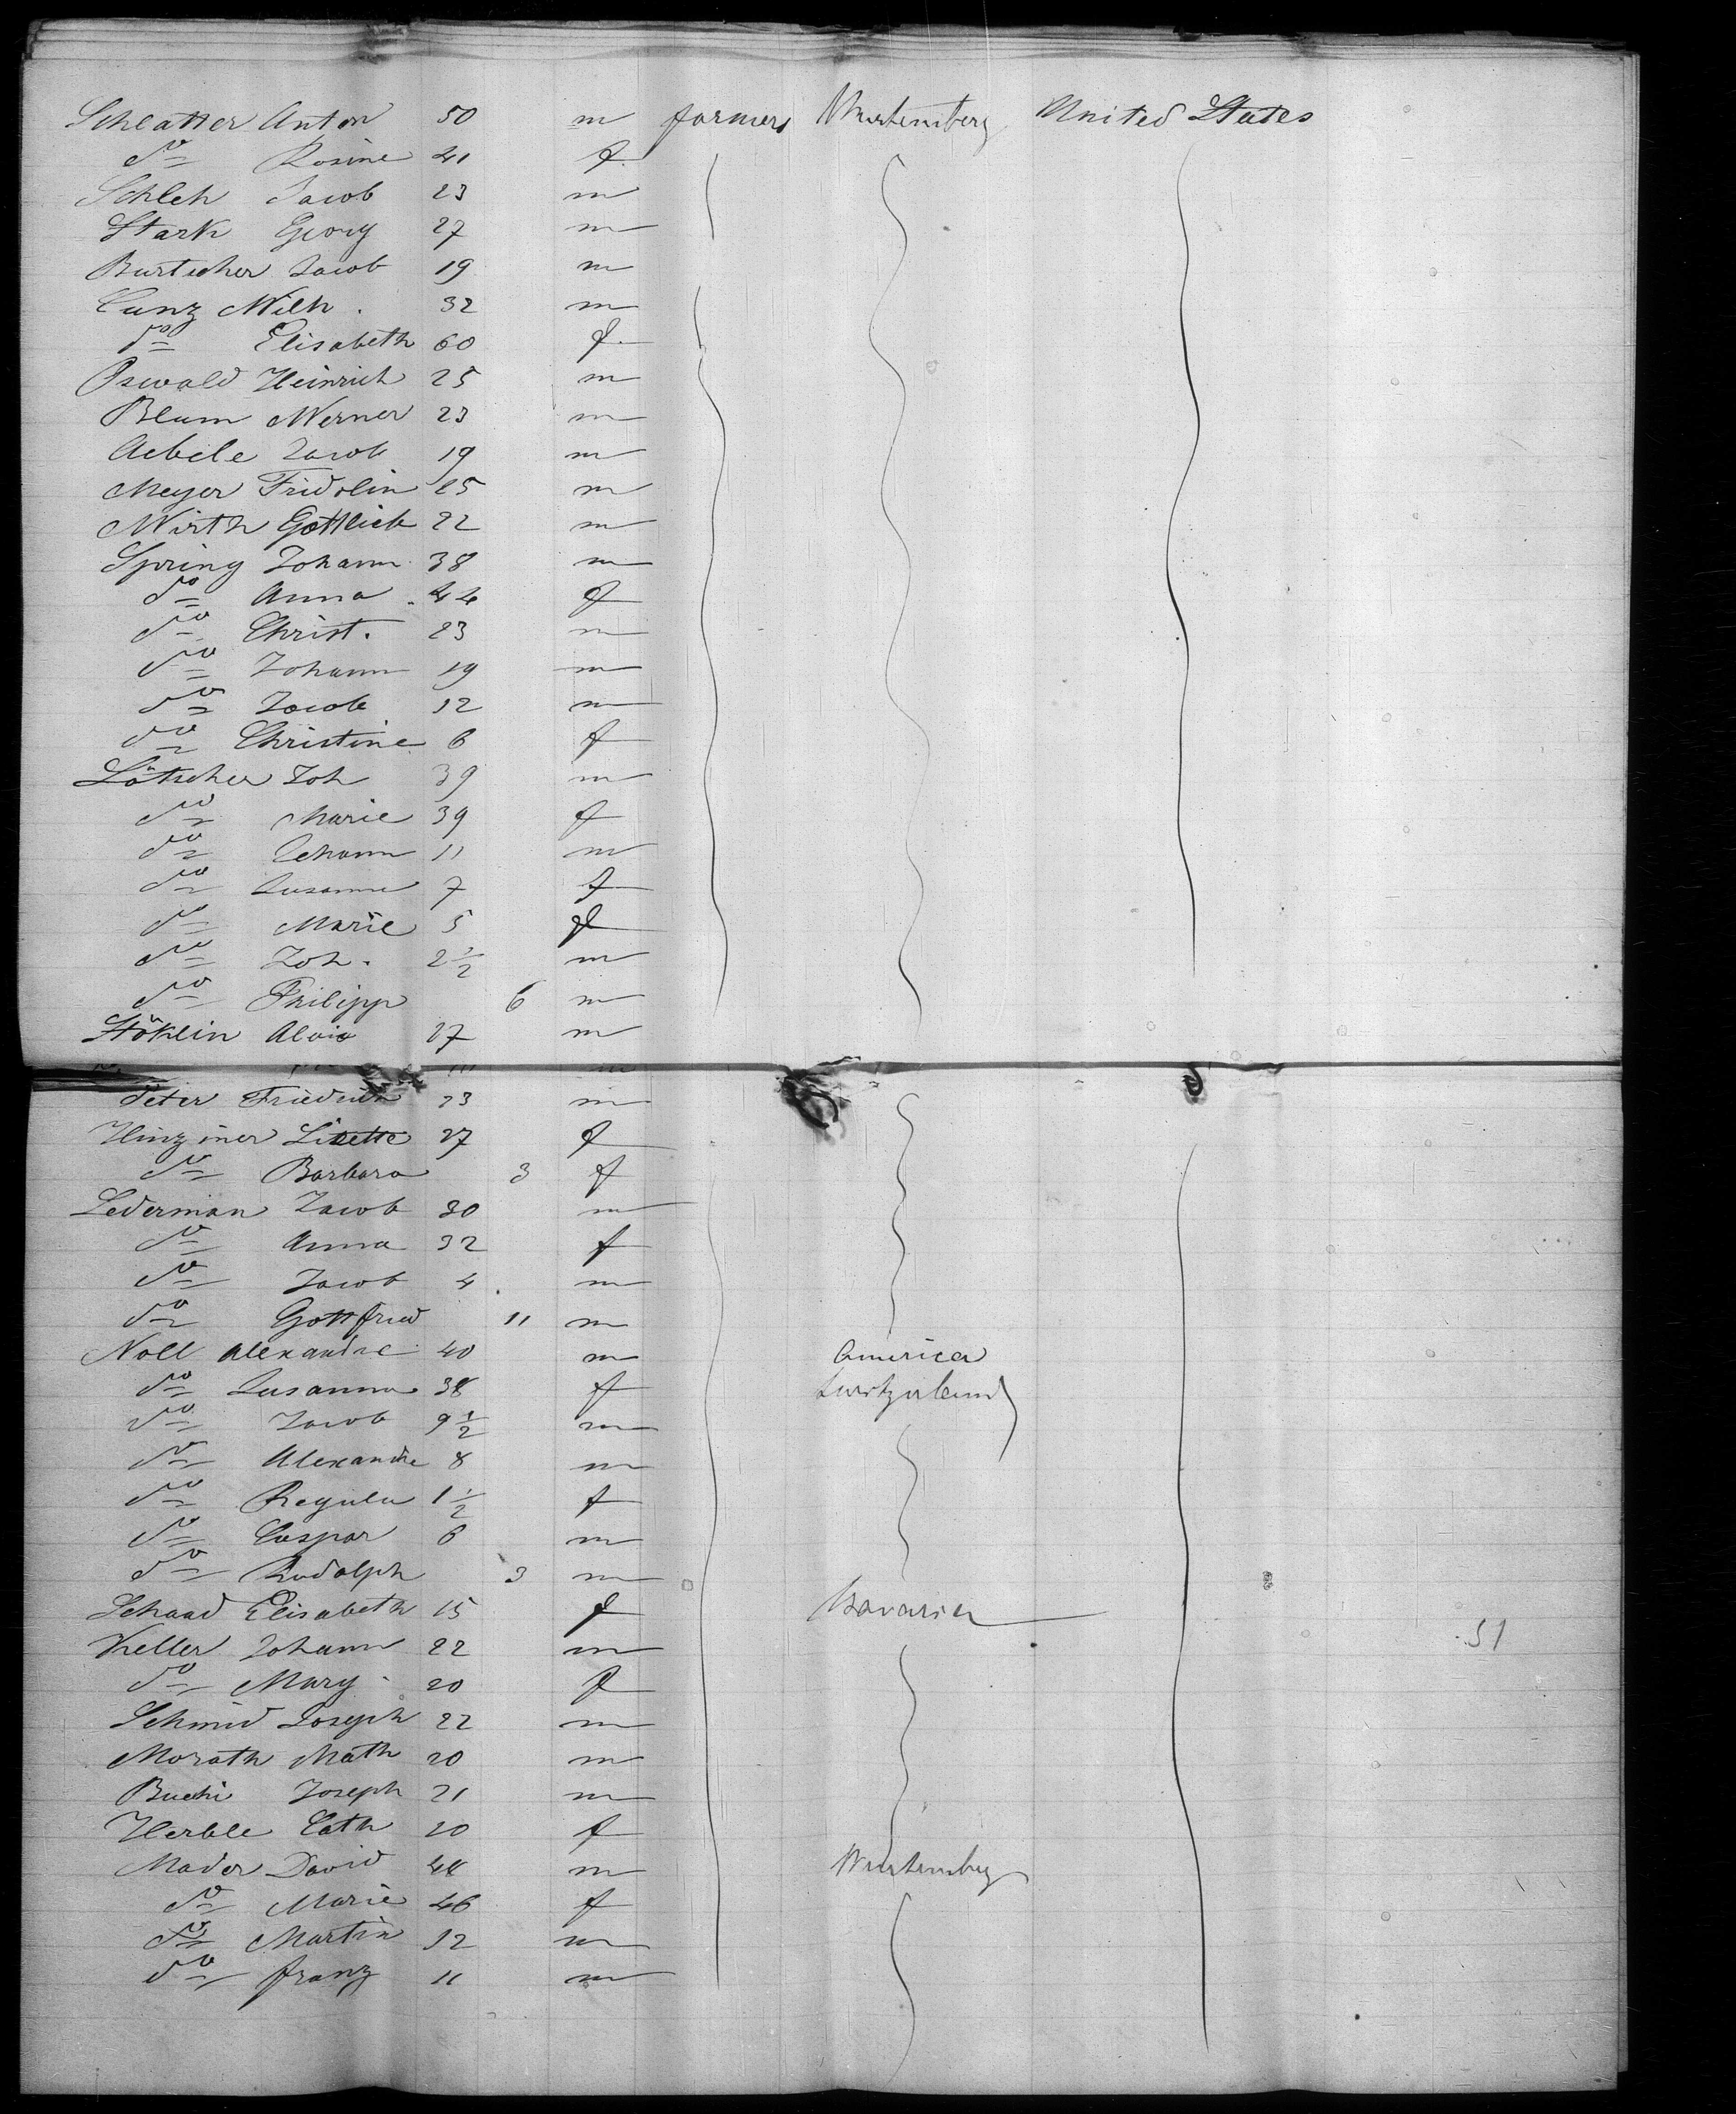 Schlatter Anton 50 m farmers Wurtemberg United States
do Rosine 41 f.
Schleh Jacob 23 m
Stark Georg 27 m
Burtscher Jacob 19 m
Cunz Wilh. 32 m
do Elisabeth 60 f.
Oswald Heinrich 25 m
Blum Werner 23 m
Aebele Jacob 19 m
Meyer Fridolin 25 m
Wirth Gottlieb 22 m
Spring Johann 38 m
do Anna 44 f
do Christ. 23 m
do Johann 19 m
do Jacob 12 m
do Christine 6 f
Lötscher Joh 39 m
do Marie 39 f
do Johann 11 m
do Susanne 7 f
do Marie 5 f
do Joh. 2 1/2 m
do Philipp 6 m
Stöklin Alois 27 m
Peter Friedrich 23 m
Lisette 27 f
do Barbara 3 f
Lederman Jacob 30 m
do Anna 32 f
do Jacob 4 m
do Gottfried 11 m
Noll Alexandre 40 m America
do Susanna 38 f Switzerland
do Jacob 9 1/2 m
do Alexandre 8 m
do Regula 1 1/2 f
do Caspar 6 m
do Rudolph 3 m
Schaad Elisabeth 15 f Bavaria
Keller Johann 22 m 51
do Mary 20 f
Schmid Joseph 22 m
Morath Math 20 m
Buchi Joseph 21 m
Herble Cath 20 f
Mader David 48 m Wurtemberg
do Marie 46 f
do Martin 12 m
do Franz 11 m